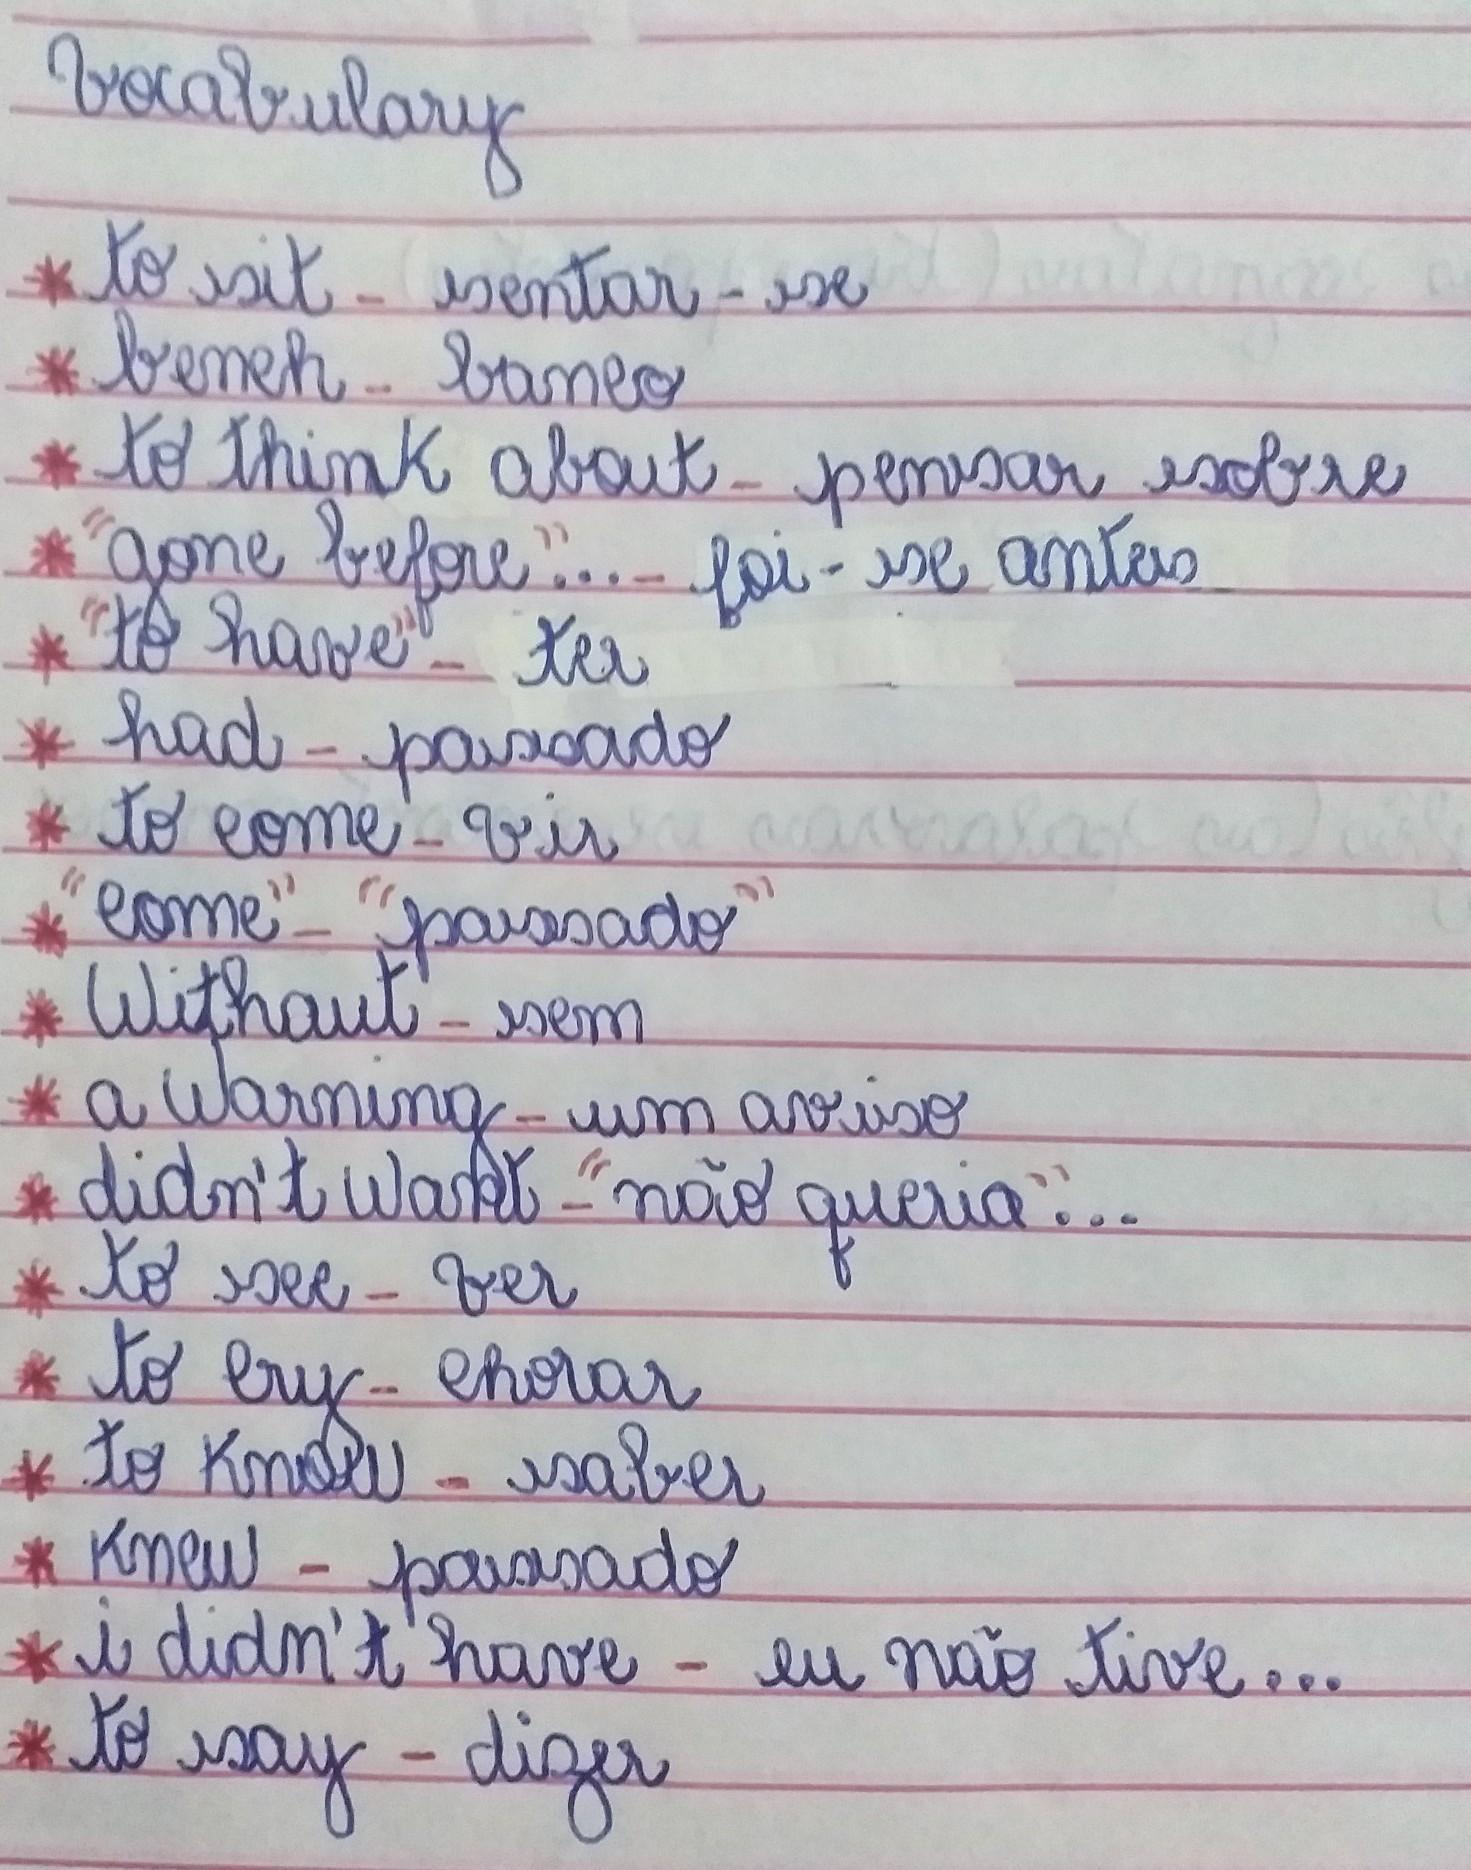 Vocabulary
* to sit - sentar-se
* bench - banco
* to think about - pensar sobre
* "gone before"... - foi-se antes
* "to have" - ter
* had - passado
* to come - vir
* "come" - "passado"
* Without - sem
* a warning - um aviso
* didn't want - "não queria"...
* to see - ver
* to cry - chorar
* to know - saber
* knew - passado
* i didn't have - eu não tive...
* to say - dizer